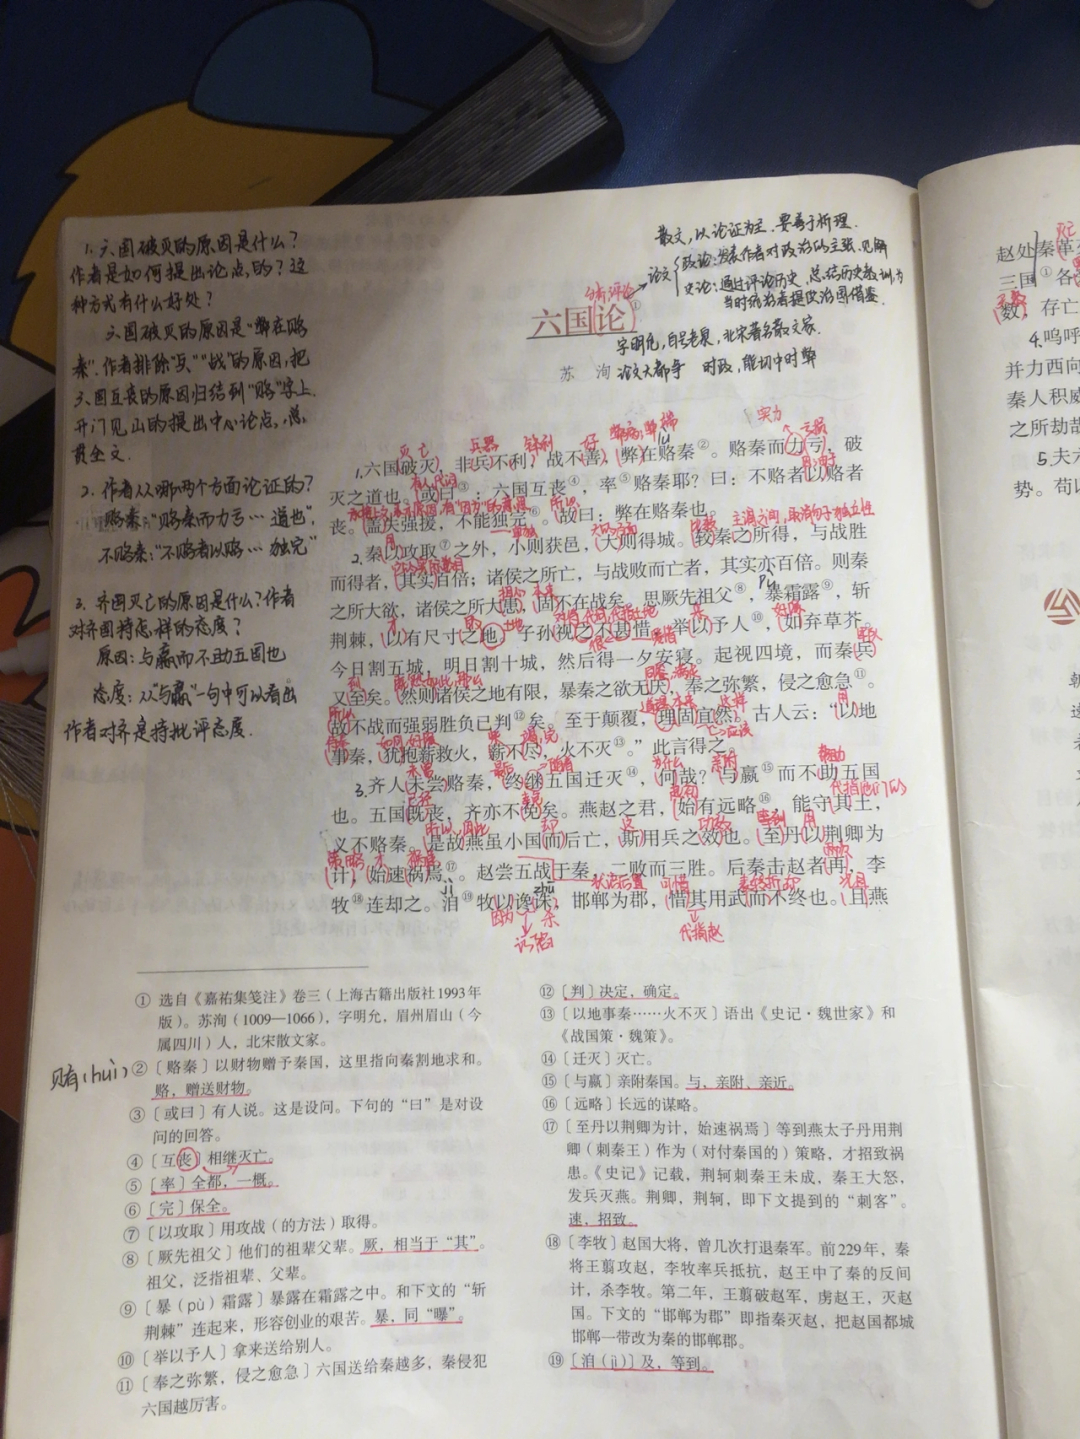 1. 六国破灭的原因是什么？
作者是如何提出论点的？这
种方式有什么好处？
六国破灭的原因是“弊在赂
秦”.作者排除“兵”“战”的原因,把
六国互丧的原因归结到“赂”字上.
开门见山的提出中心论点,总
贯全文.
2. 作者从哪两个方面论证的？
赂秦:“赂秦而力亏…道也”,
不赂秦:“不赂者以赂…独完”
3. 齐国灭亡的原因是什么？作者
对齐国持怎样的态度？
原因:与嬴而不助五国也
态度:从“与嬴”一句中可以看出
作者对齐是持批评态度.
散文,以论证为主.要善于析理.
论文
政论:发表作者对政治的主张、见解
史论:通过评论历史,总结历史教训,为
当时统治者提供治国借鉴.
六国论①
字明允,自号老泉,北宋著名散文家.
苏 洵
论文大都争 时政,能切中时弊
灭亡 兵器 锋利 好 实力
1.六国破灭，非兵不利，战不善，弊在赂秦②。赂秦而力亏，破
灭之道也。或曰③：六国互丧④，率⑤赂秦耶？曰：不赂者以赂者
丧。盖失强援，不能独完⑥。故曰：弊在赂秦也。
主谓之间,取消句子独立性
2.秦以攻取⑦之外，小则获邑，大则得城。较秦之所得，与战胜
而得者，其实百倍；诸侯之所亡，与战败而亡者，其实亦百倍。则秦
之所大欲，诸侯之所大患，固不在战矣。思厥先祖父⑧，暴霜露⑨，斩
荆棘，以有尺寸之地。子孙视之不甚惜，举以予人⑩，如弃草芥。
今日割五城，明日割十城，然后得一夕安寝。起视四境，而秦兵
又至矣。然则诸侯之地有限，暴秦之欲无厌，奉之弥繁，侵之愈急⑪。
故不战而强弱胜负已判⑫矣。至于颠覆，理固宜然。古人云：“以地
事秦，犹抱薪救火，薪不尽，火不灭⑬。”此言得之。
3.齐人未尝赂秦，终继五国迁灭⑭，何哉？与嬴⑮而不助五国
也。五国既丧，齐亦不免矣。燕赵之君，始有远略⑯，能守其土，
义不赂秦。是故燕虽小国而后亡，斯用兵之效也。至丹以荆卿为
计，始速祸焉⑰。赵尝五战于秦，二败而三胜。后秦击赵者再，李
牧⑱连却之。洎⑲牧以谗诛，邯郸为郡，惜其用武而不终也。且燕
状语后置 可惜
代指赵
① 选自《嘉祐集笺注》卷三（上海古籍出版社1993年
版）。苏洵（1009—1066），字明允，眉州眉山（今
属四川）人，北宋散文家。
贿(huì)
② 〔赂秦〕以财物赠予秦国，这里指向秦割地求和。
赂，赠送财物。
③ 〔或曰〕有人说。这是设问。下句的“曰”是对设
问的回答。
④ 〔互丧〕相继灭亡。
⑤ 〔率〕全都，一概。
⑥ 〔完〕保全。
⑦ 〔以攻取〕用攻战（的方法）取得。
⑧ 〔厥先祖父〕他们的祖辈父辈。厥，相当于“其”。
祖父，泛指祖辈、父辈。
⑨ 〔暴（pù）霜露〕暴露在霜露之中。和下文的“斩
荆棘”连起来，形容创业的艰苦。暴，同“曝”。
⑩ 〔举以予人〕拿来送给别人。
⑪ 〔奉之弥繁，侵之愈急〕六国送给秦越多，秦侵犯
六国越厉害。
⑫ 〔判〕决定，确定。
⑬ 〔以地事秦……火不灭〕语出《史记·魏世家》和
《战国策·魏策》。
⑭ 〔迁灭〕灭亡。
⑮ 〔与嬴〕亲附秦国。与，亲附、亲近。
⑯ 〔远略〕长远的谋略。
⑰ 〔至丹以荆卿为计，始速祸焉〕等到燕太子丹用荆
卿（刺秦王）作为（对付秦国的）策略，才招致祸
患。《史记》记载，荆轲刺秦王未成，秦王大怒，
发兵灭燕。荆卿，荆轲，即下文提到的“刺客”。
速，招致。
⑱ 〔李牧〕赵国大将，曾几次打退秦军。前229年，秦
将王翦攻赵，李牧率兵抵抗，赵王中了秦的反间
计，杀李牧。第二年，王翦破赵军，虏赵王，灭赵
国。下文的“邯郸为郡”即指秦灭赵，把赵国都城
邯郸一带改为秦的邯郸郡。
⑲ 〔洎（jì）〕及，等到。
赵处秦革
三国①各
数，存亡
4.呜呼
并力西向
秦人积威
之所劫哉
5.夫六
势。苟以